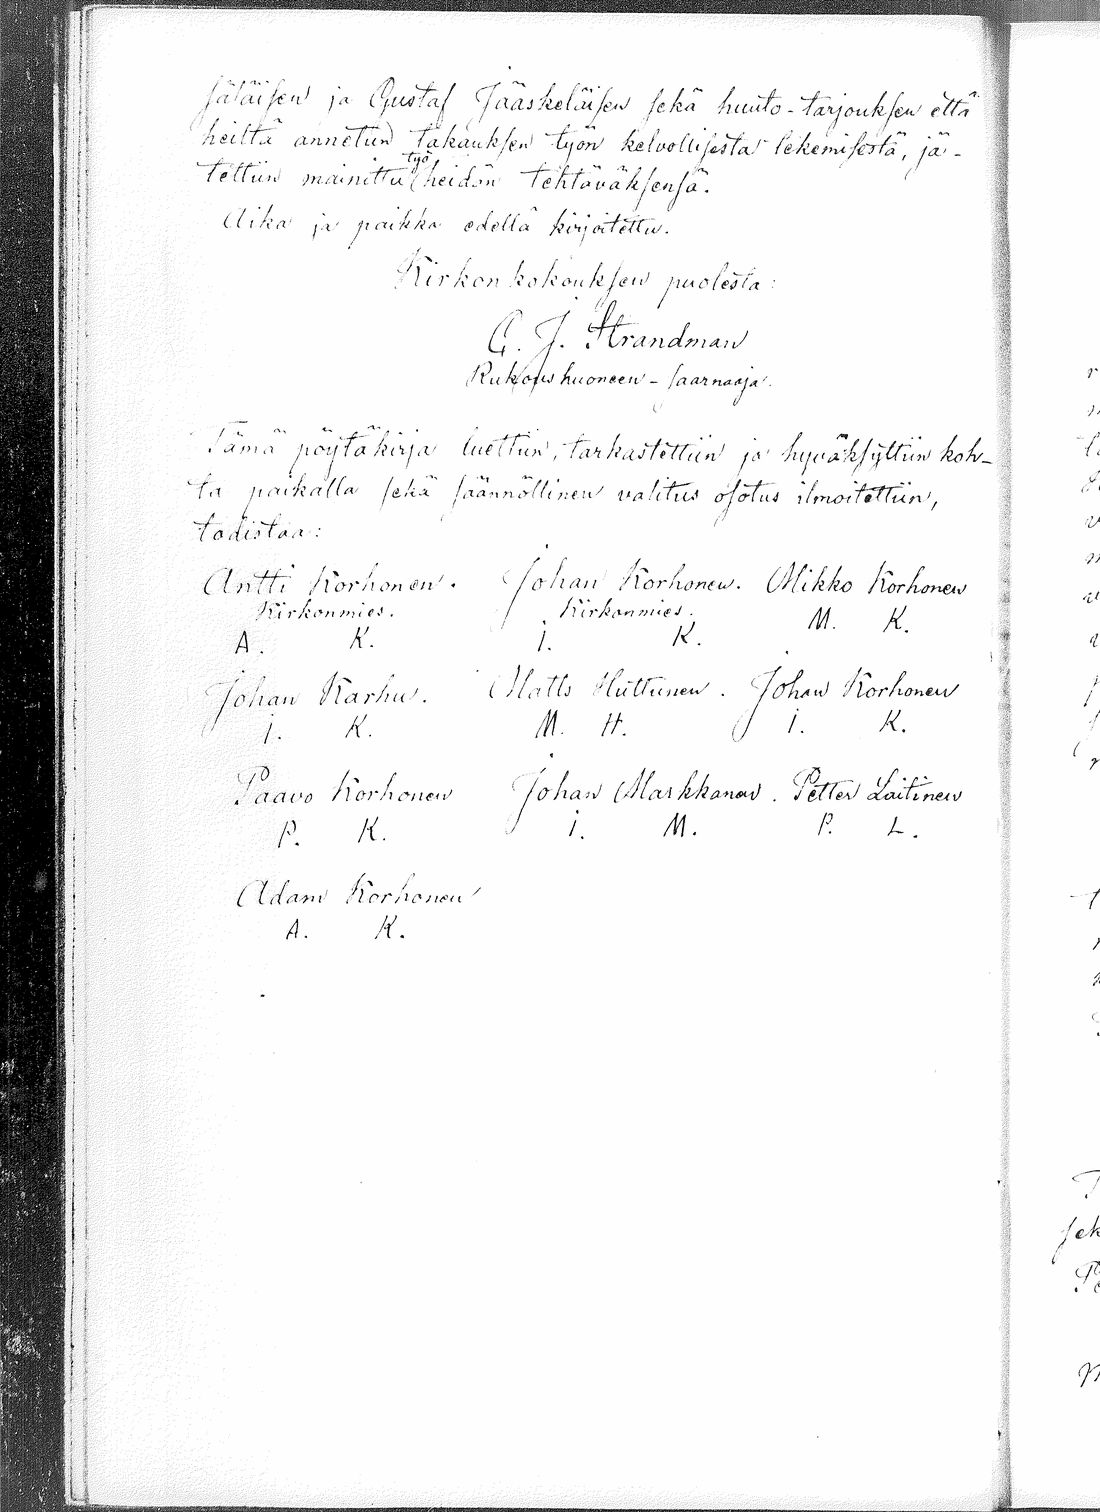 sätäisen ja Gustaf Jääskeläisen sekä huuto-tarjouksen että
heiltä annetun takauksen työn kelvollisesta tekemisestä, jä-
tettiin mainittu työ heidän tehtäväksensä.
Aika ja paikka edellä kirjoitettu.
Kirkonkokouksen puolesta:
G. J. Strandman
Rukoushuoneen-saarnaaja.
Tämä pöytäkirja luettiin, tarkastettiin ja hyväksyttiin koh-
ta paikalla sekä säännöllinen valitus osotus ilmoitettiin,
todistaa:
Antti Korhonen. Johan Korhonen. Mikko Korhonen
Kirkonmies. Kirkonmies. M. K.
A. K. I. K.
Johan Karhu. Matts Huttunen. Johan Korhonen
I. K. M. H. I. K.
Paavo Korhonen Johan Markkanen. Petter Laitinen
P. K. I. M. P. L.
Adam Korhonen
A. K.